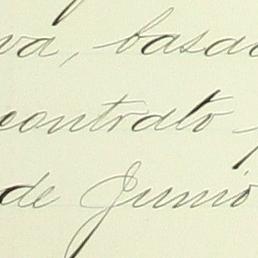 va, basad
contrato
de Junio